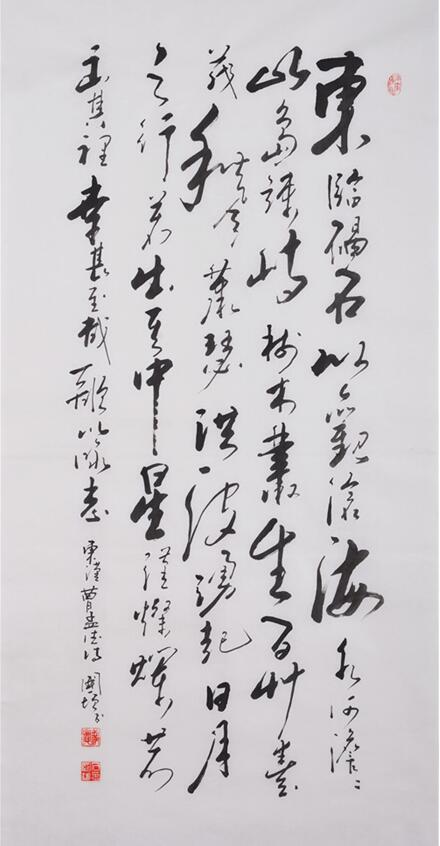 東臨碣石以觀滄海水何澹〻
山島竦峙樹木叢生百草豐
茂秋風蕭瑟洪波湧起日月
之行若出其中星漢燦爛若
出其裡幸甚至哉歌以詠志
東漢曹孟德詩 國